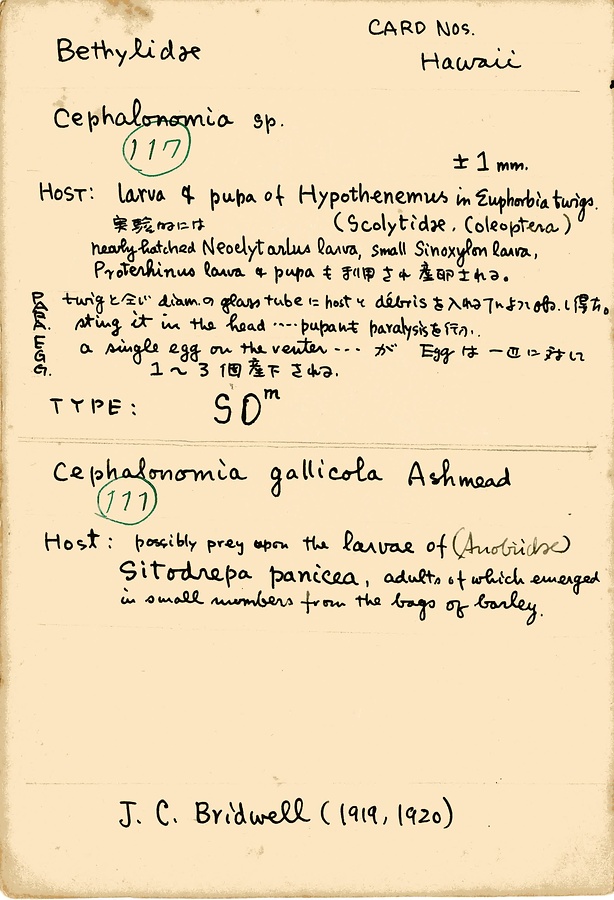 CARD NOS.
Bethylidae
Hawaii
Cephalonomia sp.
117
± 1 mm.
HOST: larva & pupa of Hypothenemus in Euphorbia twigs.
実験的には (Scolytidae, Coleoptera)
newly hatched Neoclytarlus larva, small Sinoxylon larva,
Proterhinus larva & pupa も利用され産卵される。
twig と全じ diam.の glass tube に host と débris を入れる
sting it in the head .... pupant paralysis を行い.
PARA. EGG.
a single egg on the venter --- が Egg は 一匹に対して
1 ~ 3 個産下される.
TYPE: SDᵐ
Cephalonomia gallicola Ashmead
111
Host: possibly prey upon the larvae of (Anobiidae)
Sitodrepa panicea, adults of which emerged
in small numbers from the bags of barley.
J. C. Bridwell (1919, 1920)